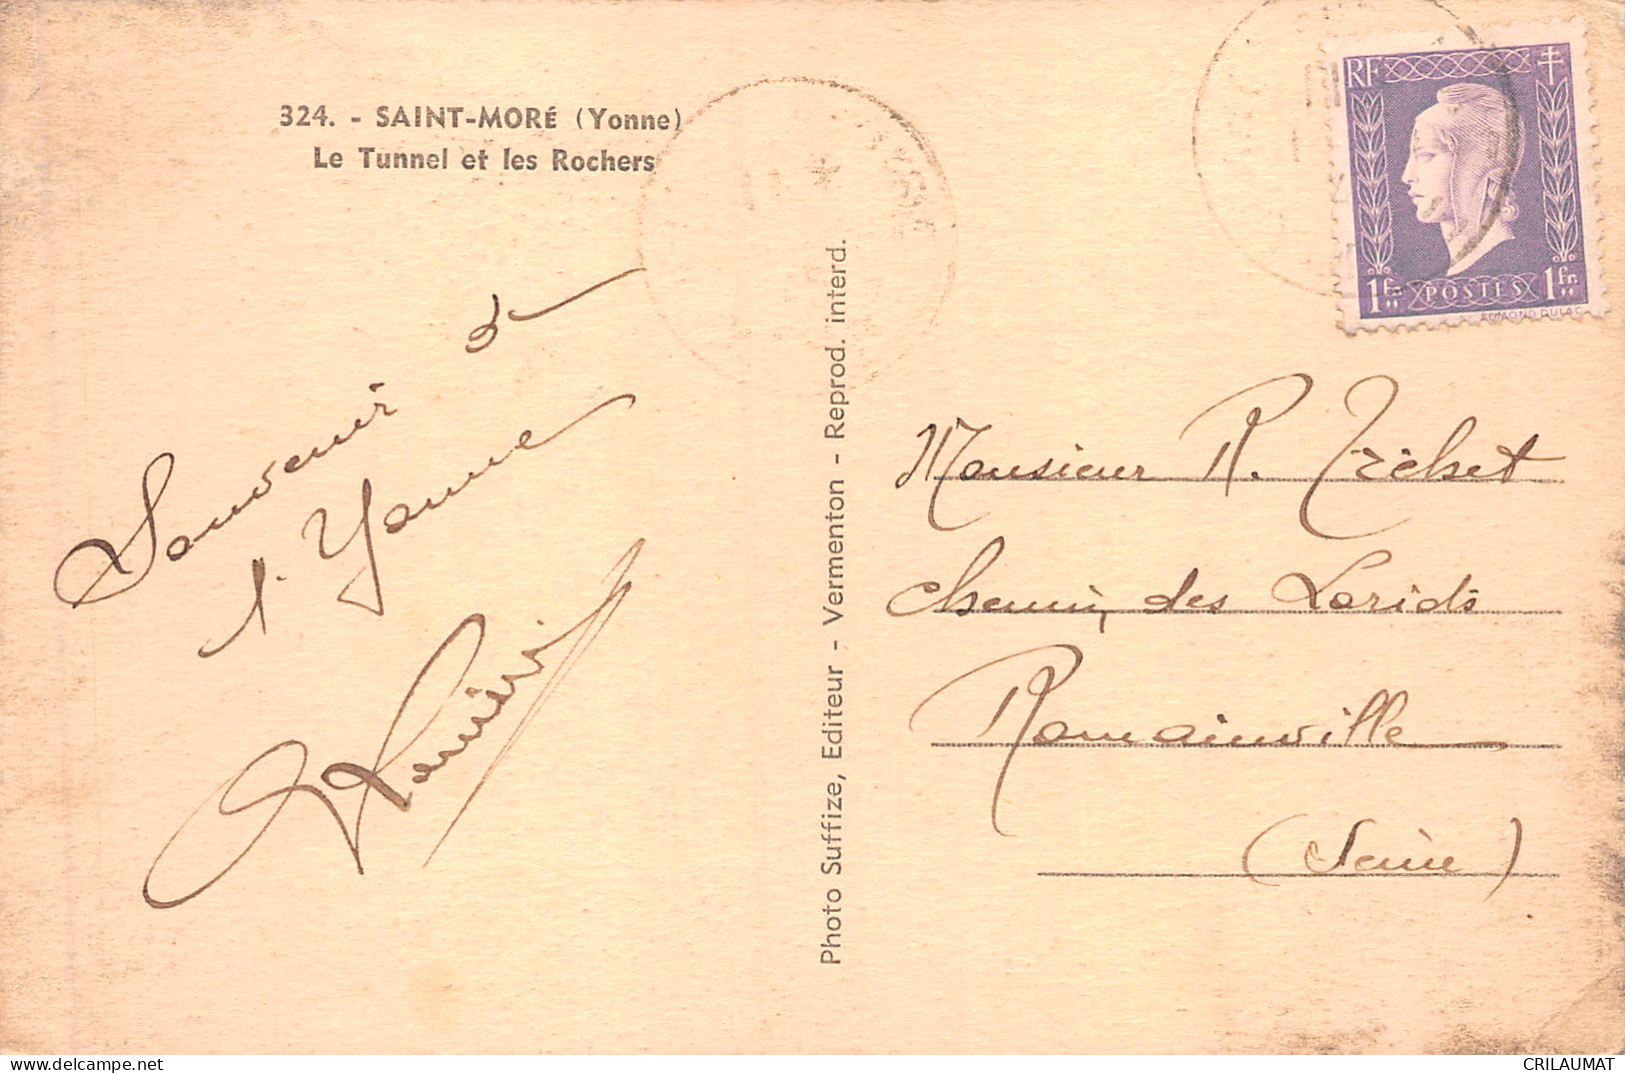 324. - SAINT-MORÉ (Yonne)
Le Tunnel et les Rochers
Souvenir de
l'Yonne
Photo Suffize, Editeur - Vermenton - Reprod. interd.
RF
1 fr.
POSTES
1 fr.
EDMOND DULAC
Monsieur R. Tréhet
Chemin des Larids
Romainville
(Seine)
www.delcampe.net
CRILAUMAT